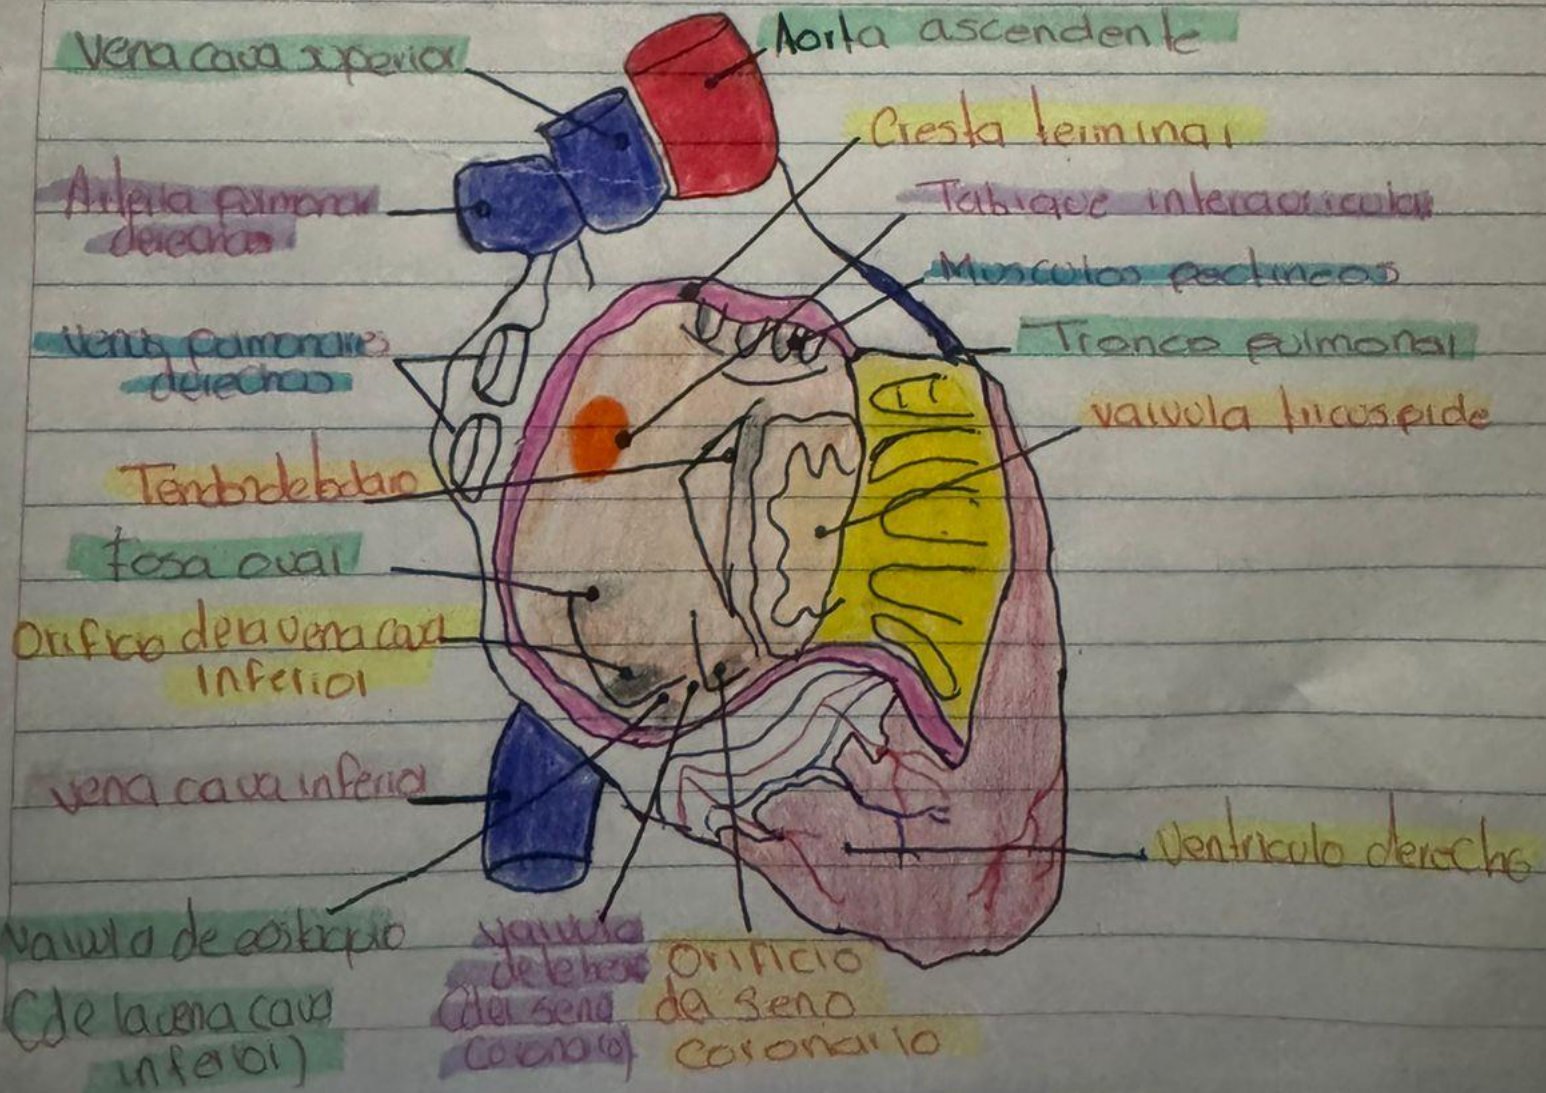 Vena cava superior
Aorta ascendente
Cresta terminal
Arteria pulmonar
derecha
Tabique interauricular
Musculos pectineos
Venas pulmonares
derechas
Tronco pulmonal
valvula tricuspide
Tendon de todaro
fosa oval
Orificio de la vena cava
Inferior
vena cava inferior
Ventriculo derecho
Valvula de eustaquio
(de la vena cava
inferior)
valvula
de tebesio
(del seno
coronario)
Orificio
del seno
coronario